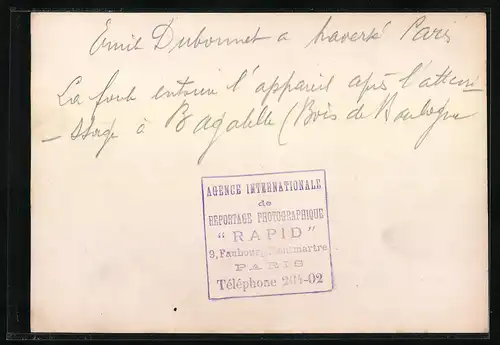 Emil Dubonnet a traversé Paris
La foule entoure l'appareil après l'atterri-
-ssage à Bagatelle (Bois de Boulogne
AGENCE INTERNATIONALE
de
REPORTAGE PHOTOGRAPHIQUE
"RAPID"
9, Faubourg Montmartre
PARIS
Téléphone 204-02